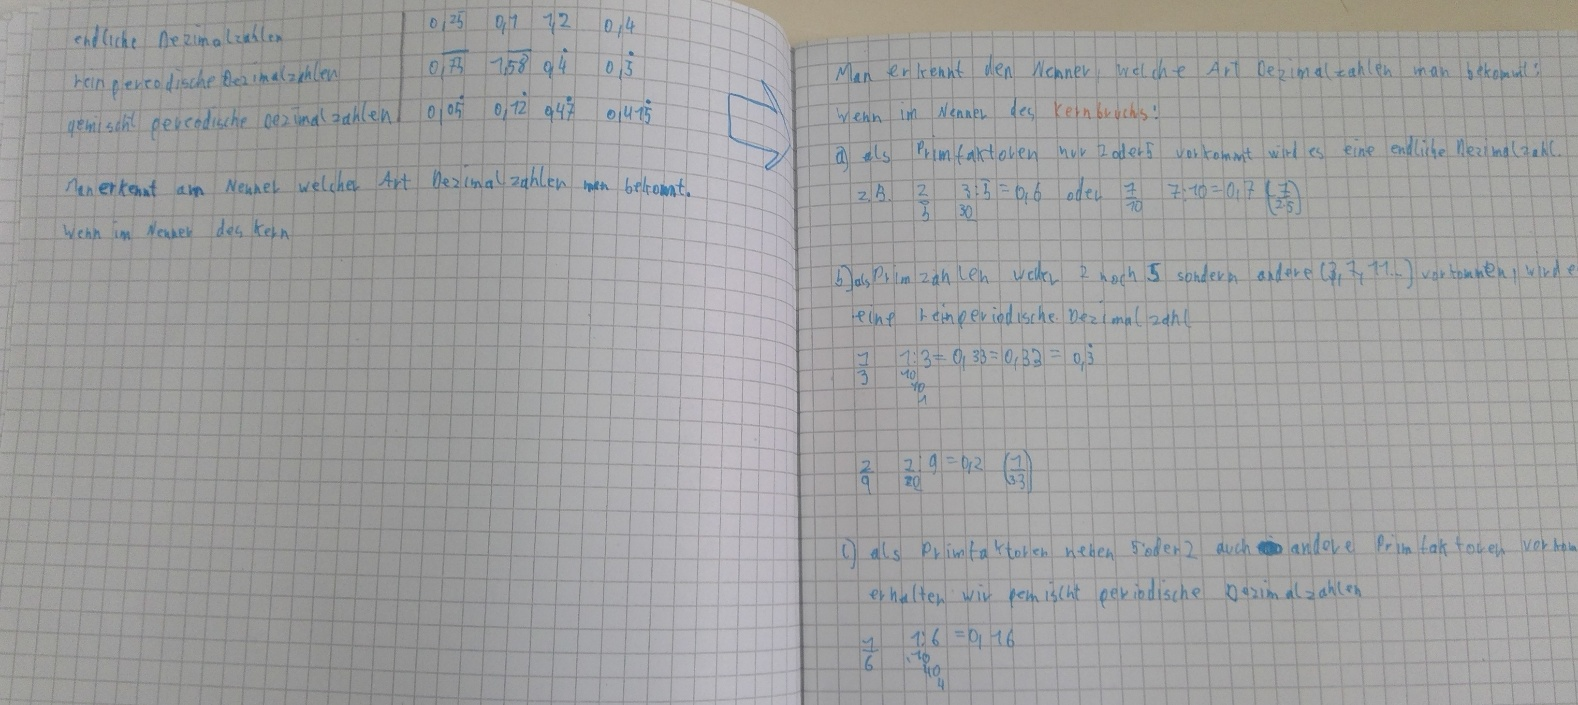 endliche Dezimalzahlen 0,25 0,1 1,2 0,4
rein percodische Dezimalzahlen 0,7̅5̅ 1,5̅8̅ 0,4̇ 0,3̇
gemischt percodische Dezimalzahlen 0,05̇ 0,12̇ 0,47̇ 0,415̇
Man erkennt am Nenner welcher Art Dezimalzahlen man bekomt.
Wenn im Nenner des Kern
Man erkennt den Nenner, welche Art Dezimalzahlen man bekommt:
Wenn im Nenner des Kernbruchs:
a) als Primfaktoren nur 2 oder 5 vorkommt wird es eine endliche Dezimalzahl.
z.B. 3:5 = 0,6 oder 7/10 7:10=0,7 (7/25)
30
b) als Primzahlen weder 2 noch 5 sondern andere (3,7,11..) vorkommen, wird e
eine reinperiodische Dezimalzahl
1/3 1:3= 0,33=0,33 = 0,3̇
10
10
1
2/9 2:9 =0,2 (1/33)
20
c) als Primfaktoren neben 5 oder 2 auch andere Primfaktoren vorkom
erhalten wir gemischt periodische Dezimalzahlen
1/6 1:6 =0,16
10
40
4